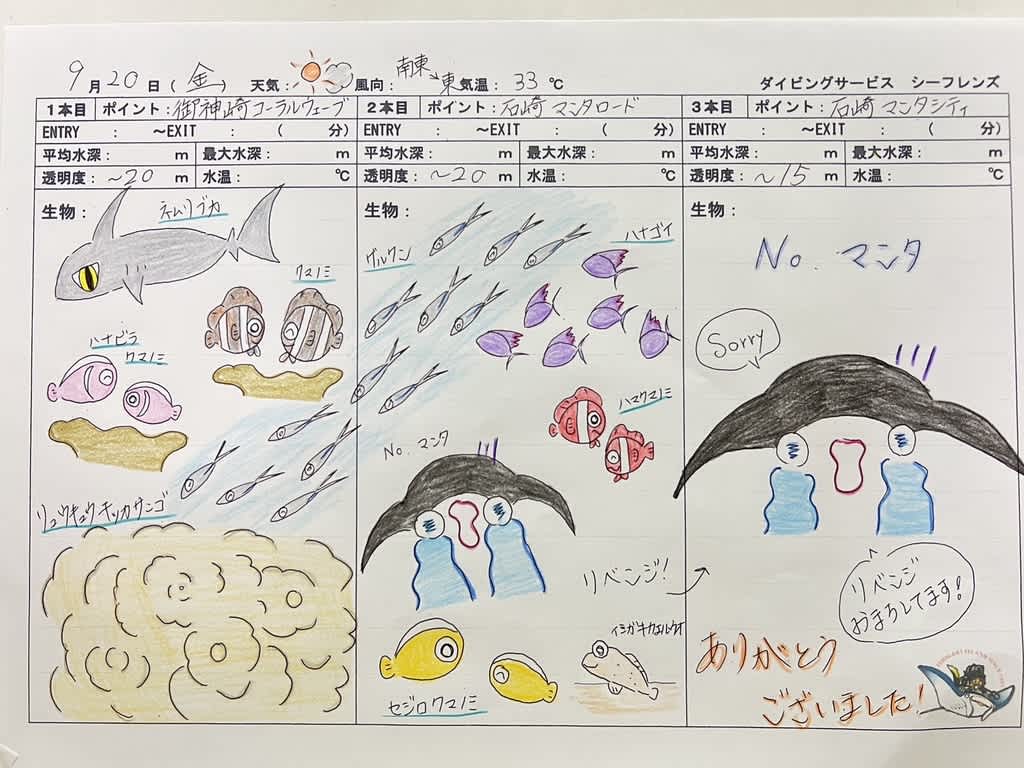 9月20日(金) 天気: 風向: 南東→東 気温: 33 ℃
ダイビングサービス シーフレンズ
1本目 ポイント:御神崎コーラルウェーブ
ENTRY : ～EXIT : ( 分)
平均水深: m 最大水深: m
透明度: ～20 m 水温: ℃
生物:
ネムリブカ
クマノミ
ハナビラ
クマノミ
リュウキュウキッカサンゴ
2本目 ポイント:石崎 マンタロード
ENTRY : ～EXIT : ( 分)
平均水深: m 最大水深: m
透明度: ～20 m 水温: ℃
生物:
グルクン
ハナゴイ
ハマクマノミ
No. マンタ
リベンジ!
イシガキカエルウオ
セジロクマノミ
3本目 ポイント:石崎 マンタシティ
ENTRY : ～EXIT : ( 分)
平均水深: m 最大水深: m
透明度: ～15 m 水温: ℃
生物:
No. マンタ
Sorry
リベンジ
おまちしてます!
ありがとう
ございました!